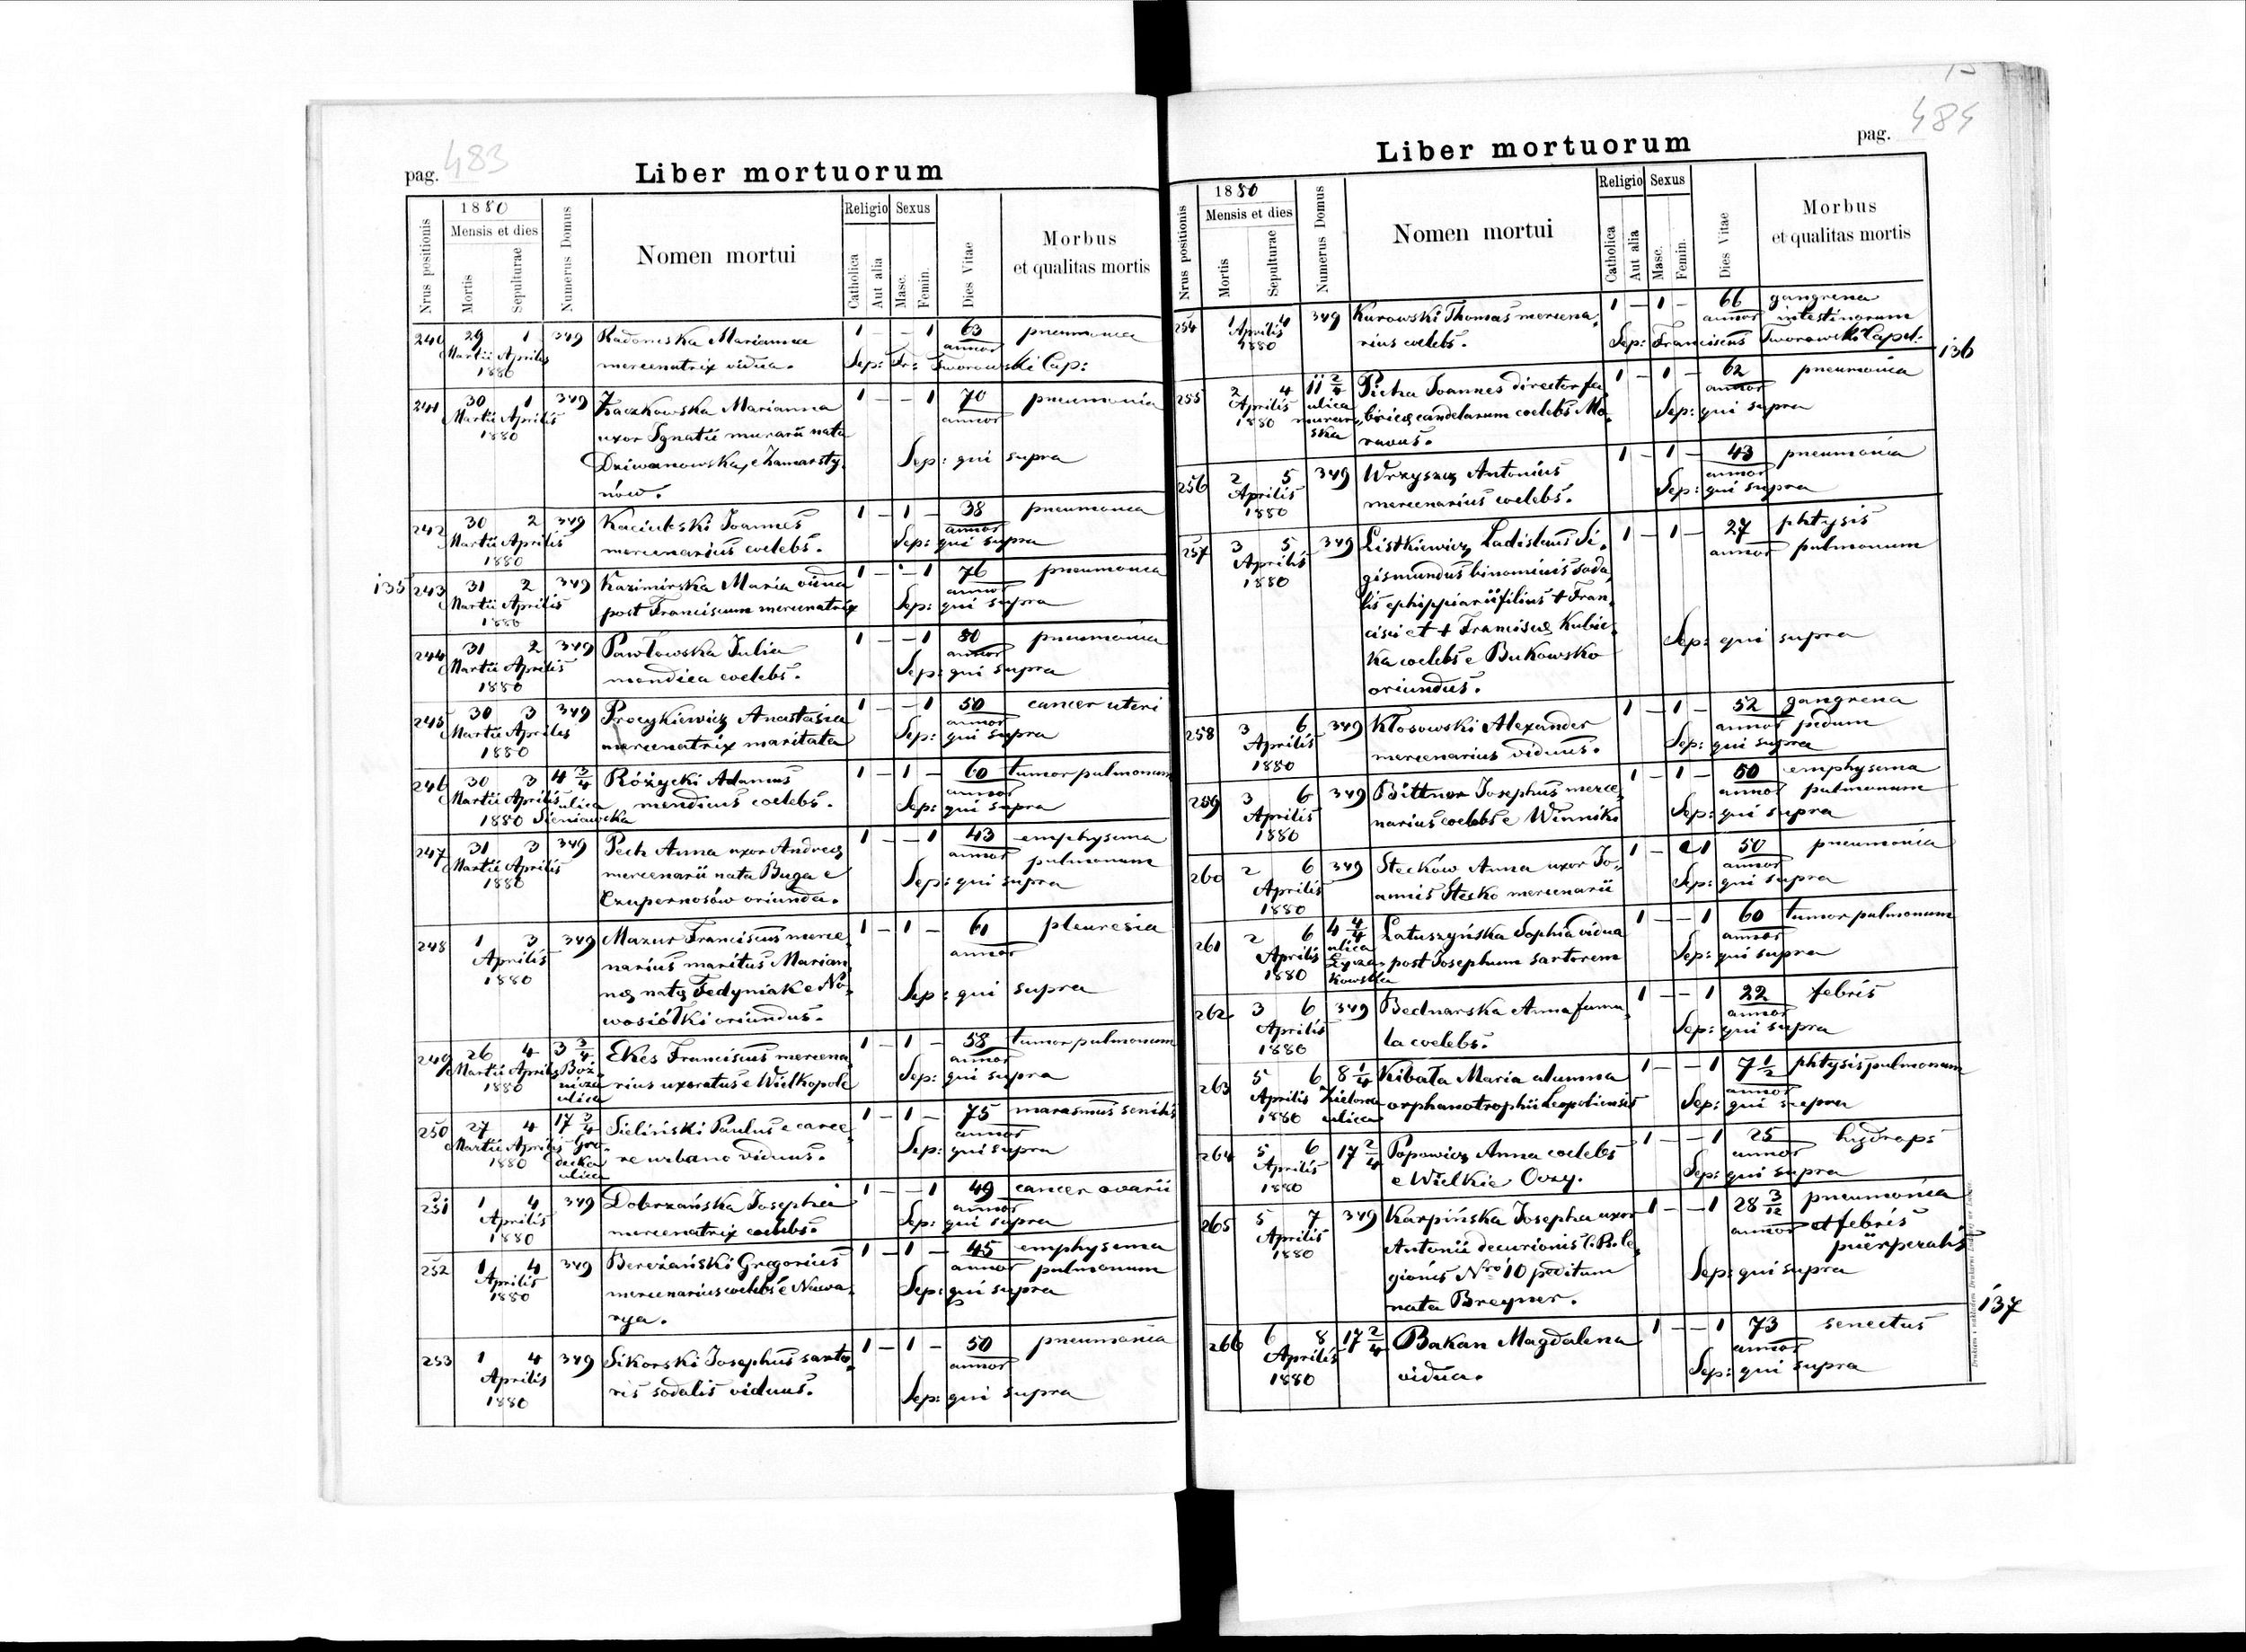 pag. 483
Liber mortuorum
Nrus positionis
1880
Mensis et dies
Mortis
Sepulturae
Numerus Domus
Nomen mortui
Religio
Catholica
Aut alia
Sexus
Masc.
Femin.
Dies Vitae
Morbus
et qualitas mortis
240 29 1 349 Radomska Marianna 1 - - 1 63 pneumonia
Martii Aprilis mercenatrix vidua. annor
1880 Sep: Fr: Tworowski Cap:
241 30 1 349 Żaczkowska Marianna 1 - - 1 70 pneumonia
Martii Aprilis uxor Ignatii murarii nata annor
1880 Dziwanowska, e Zamarsty,
nów. Sep: qui supra
242 30 2 349 Kaciubski Joannes 1 - 1 - 38 pneumonia
Martii Aprilis mercenarius coelebs. annor
1880 Sep: qui supra
135 243 31 2 349 Kazimirska Maria vidua 1 - - 1 76 pneumonia
Martii Aprilis post Franciscum mercenatrix annor
1880 Sep: qui supra
244 31 2 349 Pawłowska Julia 1 - - 1 80 pneumonia
Martii Aprilis mendica coelebs. annor
1880 Sep: qui supra
245 30 3 349 Procykiewicz Anastasia 1 - - 1 50 cancer uteri
Martii Aprilis mercenatrix maritata annor
1880 Sep: qui supra
246 30 3 4 3/4 Różycki Adamus 1 - 1 - 60 tumor pulmonum
Martii Aprilis ulica mendicus coelebs. annor
1880 Sieniawska Sep: qui supra
247 31 3 349 Pech Anna uxor Andreæ 1 - - 1 43 emphysema
Martii Aprilis mercenarii nata Buga e annor pulmonum
1880 Czupernosów oriunda. Sep: qui supra
248 1 3 349 Mazur Franciscus merce, 1 - 1 - 61 pleuresia
Aprilis narius maritus Marian, annor
1880 næ natæ Fedyniak e No,
wosiółki oriundus. Sep: qui supra
249 26 4 3 3/4 Ekes Franciscus mercena, 1 - 1 - 58 tumor pulmonum
Martii Aprilis Boż- rius uxoratus e Wielkopole annor
1880 nicza Sep: qui supra
ulica
250 27 4 17 3/4 Sieliński Paulus e carce, 1 - 1 - 75 marasmus senilis
Martii Aprilis Gro- re urbano viduus. annor
1880 decka Sep: qui supra
ulica
251 1 4 349 Dobrzańska Josepha 1 - - 1 49 cancer ovarii
Aprilis mercenatrix coelebs. annor
1880 Sep: qui supra
252 1 4 349 Bereżański Gregorius 1 - 1 - 45 emphysema
Aprilis mercenarius coelebs e Nawa, annor pulmonum
1880 rya. Sep: qui supra
253 1 4 349 Sikorski Josephus sarto, 1 - 1 - 50 pneumonia
Aprilis ris sodalis viduus. annor
1880 Sep: qui supra
Liber mortuorum
pag. 484
Nrus positionis
1880
Mensis et dies
Mortis
Sepulturae
Numerus Domus
Nomen mortui
Religio
Catholica
Aut alia
Sexus
Masc.
Femin.
Dies Vitae
Morbus
et qualitas mortis
254 1 4 349 Kurowski Thomas mercena, 1 - 1 - 66 gangrena
Aprilis rius coelebs. annor intestinorum
1880 Sep: Franciscus Tworowski Capel: 136
255 2 4 11 2/4 Picha Joannes director fa, 1 - 1 - 62 pneumonia
Aprilis ulica bricæ candelarum coelebs Mo, annor
1880 murar, ravus. Sep: qui supra
ska
256 2 5 349 Wrzyszcz Antonius 1 - 1 - 43 pneumonia
Aprilis mercenarius coelebs. annor
1880 Sep: qui supra
257 3 5 349 Listkiewicz Ladislaus Si, 1 - 1 - 27 phtysis
Aprilis gismundus binominis soda, annor pulmonum
1880 lis ephippiarii filius + Fran,
cisci et + Franciscæ Kubic, Sep: qui supra
ka coelebs e Bukowsko
oriundus.
258 3 6 349 Kłosowski Alexander 1 - 1 - 52 gangrena
Aprilis mercenarius viduus. annor pedum
1880 Sep: qui supra
259 3 6 349 Bittner Josephus merce, 1 - 1 - 50 emphysema
Aprilis narius coelebs e Winniki annor pulmonum
1880 Sep: qui supra
260 2 6 349 Stecków Anna uxor Jo- 1 - 1 50 pneumonia
Aprilis annis Stecko mercenarii annor
1880 Sep: qui supra
261 2 6 4 4/4 Łatuszyńska Sophia vidua 1 - - 1 60 tumor pulmonum
Aprilis ulica post Josephum sartorem annor
1880 Łycza- Sep: qui supra
kowska
262 3 6 349 Bednarska Anna famu, 1 - - 1 22 febris
Aprilis la coelebs. annor
1880 Sep: qui supra
263 5 6 8 1/4 Kibała Maria alumna 1 - - 1 7 1/2 phtysis pulmonum
Aprilis Zielona orphanotrophii Leopoliensis annor
1880 ulica Sep: qui supra
264 5 6 17 2/4 Popowicz Anna coelebs 1 - - 1 25 hydrops
Aprilis e Wielkie Oczy. annor
1880 Sep: qui supra
265 5 7 349 Karpińska Josepha uxor 1 - - 1 28 3/12 pneumonia
Aprilis Antonii decurionis C. R. le, annor et febris
1880 gionis Nro 10 peditum puerperalis
nata Breyner. Sep: qui supra
266 6 8 17 2/4 Bakan Magdalena 1 - - 1 73 senectus 137
Aprilis vidua. annor
1880 Sep: qui supra